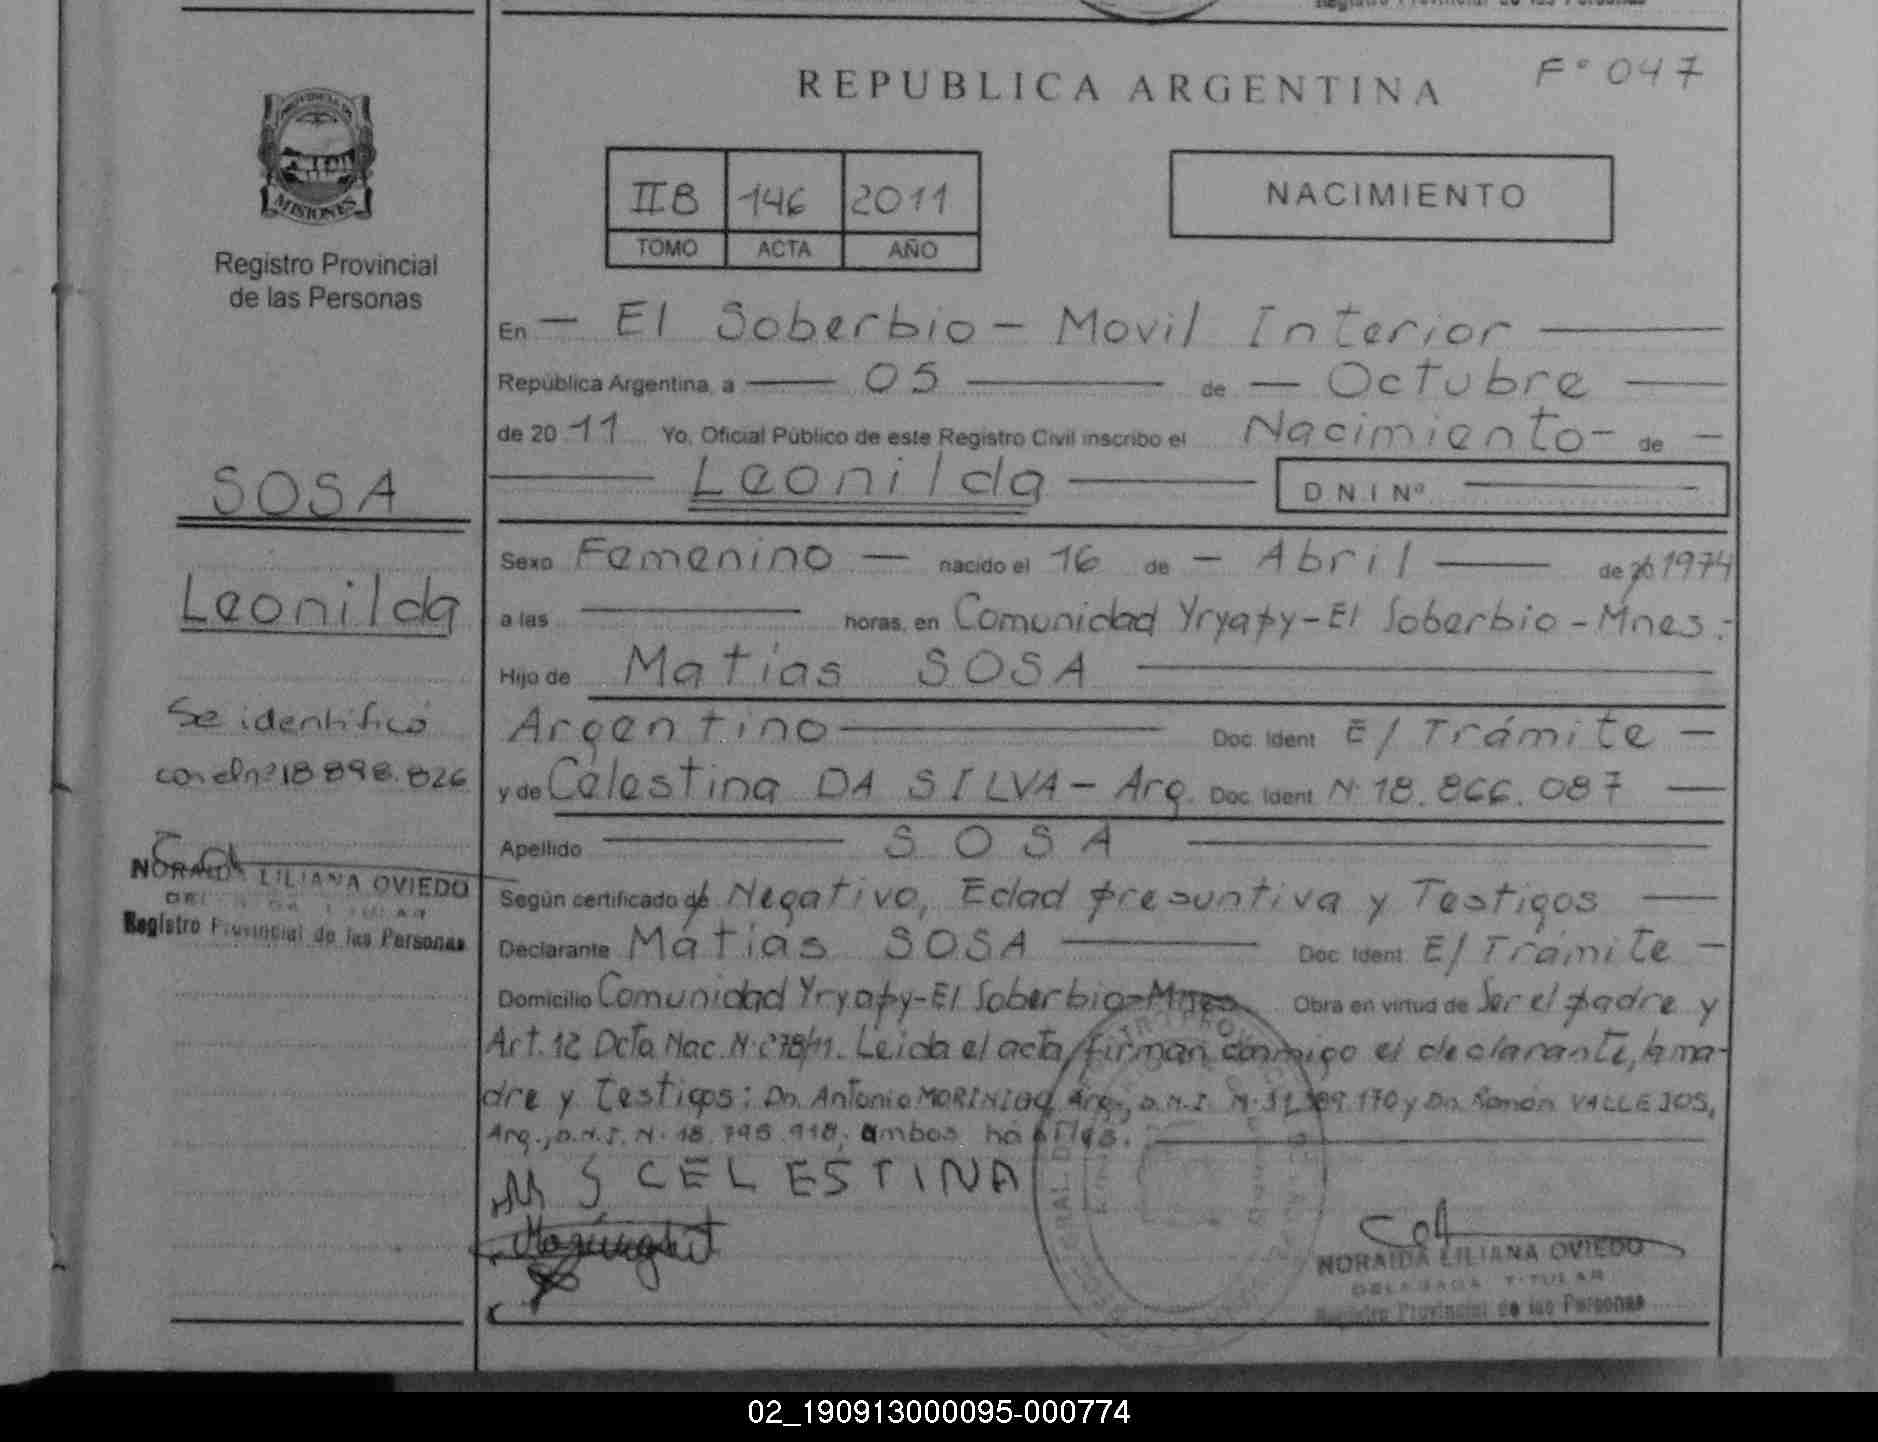 REPUBLICA ARGENTINA
F° 047
PROVINCIA DE
MISIONES
Registro Provincial
de las Personas
IIB 146 2011
TOMO ACTA AÑO
NACIMIENTO
En — El Soberbio — Movil Interior
República Argentina, a 05 de — Octubre
de 2011 Yo, Oficial Público de este Registro Civil inscribo el Nacimiento - de —
Leonilda D N I Nº
SOSA
Leonilda
Se identificó
con el nº 18 898.826
NORAIDA LILIANA OVIEDO
Registro Provincial de las Personas
Sexo Femenino — nacido el 16 de — Abril de 20 1974
a las horas, en Comunidad Yryapy - El Soberbio - Mnes.-
Hijo de Matias SOSA
Argentino Doc. Ident E/ Trámite —
y de Celestina DA SILVA — Arg. Doc. Ident N° 18.866.087
Apellido SOSA
Según certificado de Negativo, Edad presuntiva y Testigos
Declarante Matias SOSA Doc. Ident. E/ Trámite —
Domicilio Comunidad Yryapy - El Soberbio - Mnes Obra en virtud de Ser el padre y
Art. 12 Dcto. Nac. N° 278/11. Leida el acta, firman conmigo el declarante, la ma-
dre y testigos: Dn. Antonio Arg., D.N.I. N° y Dn. Ramón VALLEJOS,
Arg., D.N.I. N° 18.798.918, ambos hábiles.
M S CELESTINA
NORAIDA LILIANA OVIEDO
DELEGADA TITULAR
Registro Provincial de las Personas
02_190913000095-000774